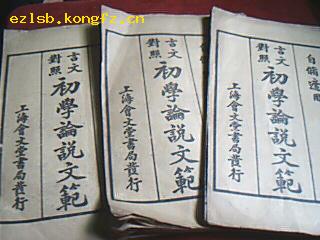 ezlsb.kongfz.cn
言文對照
初學論說文範
上海會文堂書局發行
言文對照
初學論說文範
上海會文堂書局發行
自備適用
言文對照
初學論說文範
上海會文堂書局發行